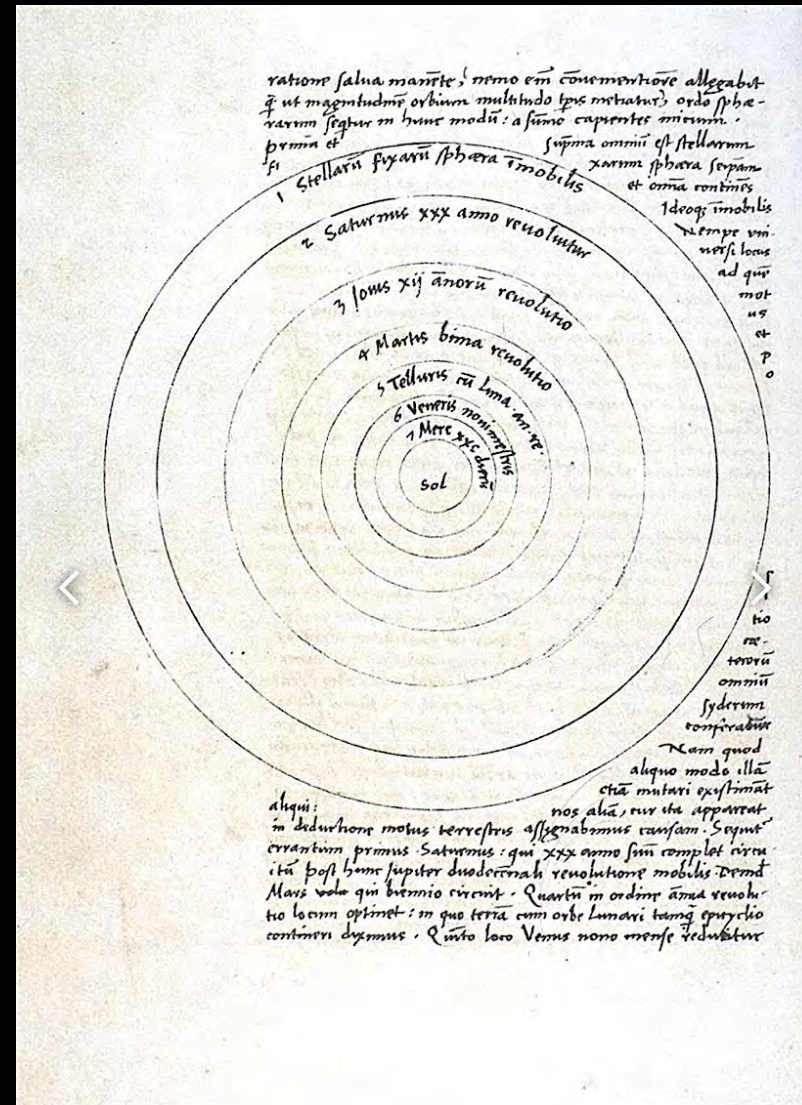 ratione salua manēte, nemo em̄ cōuementiorē allegabit
q̄ ut magnitudinē orbium multitudo tp̄is metiatur, ordo sphæ-
rarum seqtur in hunc modū: a sūmo capientes inicium.
prima et suprema omniū est stellarum
fi xarum sphæra seipam
et omīa continēs
Ideoq; īmobilis
Nempe uni-
uersi locus
ad quē
mot
us
et
p
o
1 Stellarū fixarū sphæra īmobilis
2 Saturnus xxx anno reuoluitur
3 Iouis xij ānorū reuolutio
4 Martis bima reuolutio
5 Telluris cū luna an. re.
6 Veneris nonimestris
7 Merc xxc dierū
Sol
tio
cæ-
terorū
omniū
syderum
conferatur
Nam quod
aliquo modo illā
etiā mutari existimāt
aliqui: nos aliā, cur ita appareat
in deductione motus terrestris assignabimus causam. Sequit
errantium primus Saturnus: qui xxx anno suū complet circu-
itū post hunc Jupiter duodecēnali reuolutione mobilis Deind
Mars qui biennio circuit. Quartū in ordine ānua reuolu-
tio locum optinet: in quo terrā cum orbe Lunari tamq̄ epicyclio
contineri diximus. Quīto loco Venus nono mense reducitur